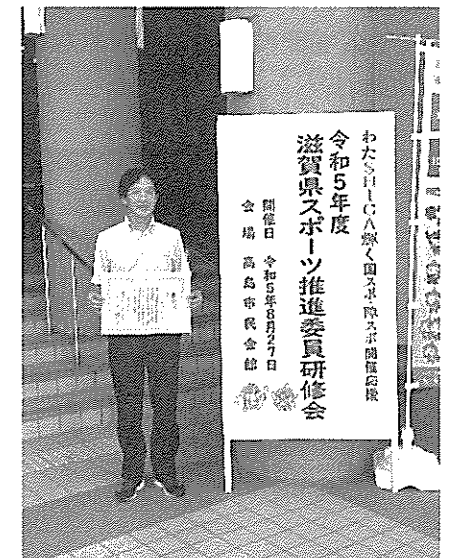 わたSHIGA輝く国スポ・障スポ開催応援
令和5年度
滋賀県スポーツ推進委員研修会
開催日 令和5年8月27日
会場 高島市民会館